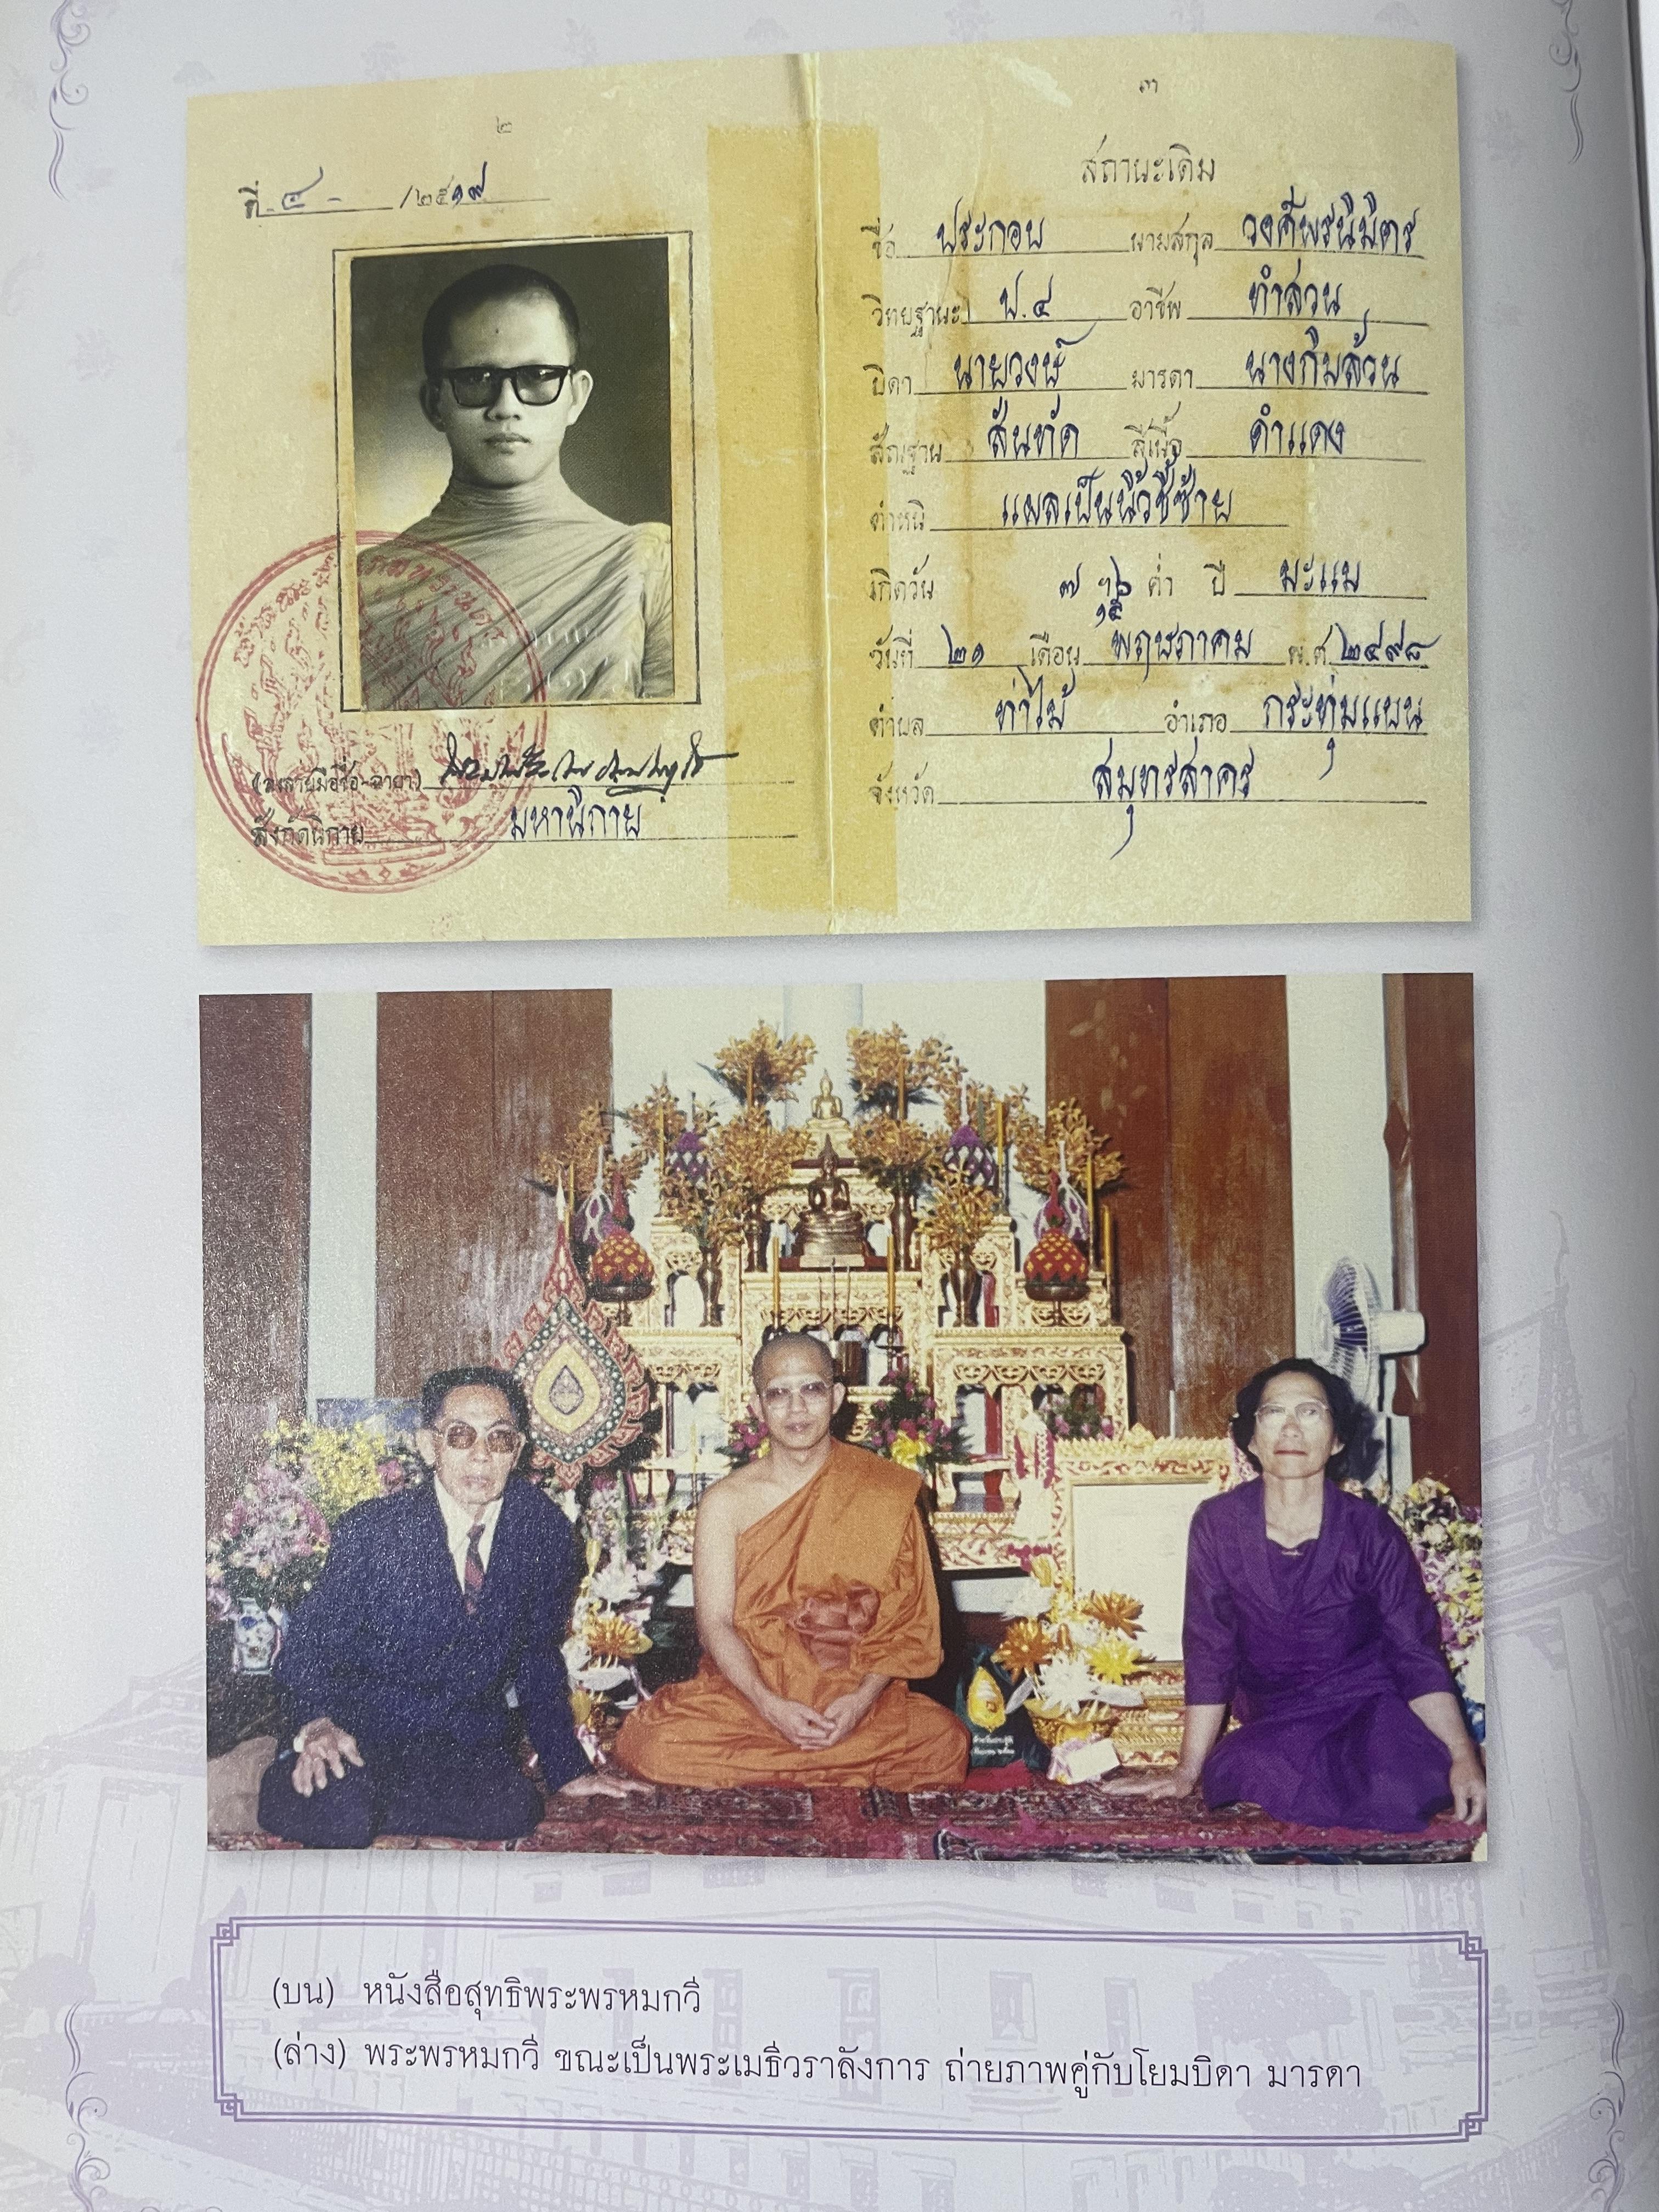 ๒
ที่ ๔ - /๒๕๑๙
(ลงลายมือชื่อ-ฉายา)
สังกัดนิกาย มหานิกาย
๓
สถานะเดิม
ชื่อ ประกอบ นามสกุล วงศ์พรนิมิตร
วิทยฐานะ ป.๔ อาชีพ ทำสวน
บิดา นายวงษ์ มารดา นางกิมล้วน
สัณฐาน สันทัด สีเนื้อ ดำแดง
ตำหนิ แผลเป็นนิ้วชี้ซ้าย
เกิดวัน ๗ ฯ ๖ ค่ำ ปี มะแม
๑๕
วันที่ ๒๑ เดือน พฤษภาคม พ.ศ. ๒๔๙๘
ตำบล ท่าไม้ อำเภอ กระทุ่มแบน
จังหวัด สมุทรสาคร
(บน) หนังสือสุทธิพระพรหมกวี
(ล่าง) พระพรหมกวี ขณะเป็นพระเมธีวราลังการ ถ่ายภาพคู่กับโยมบิดา มารดา